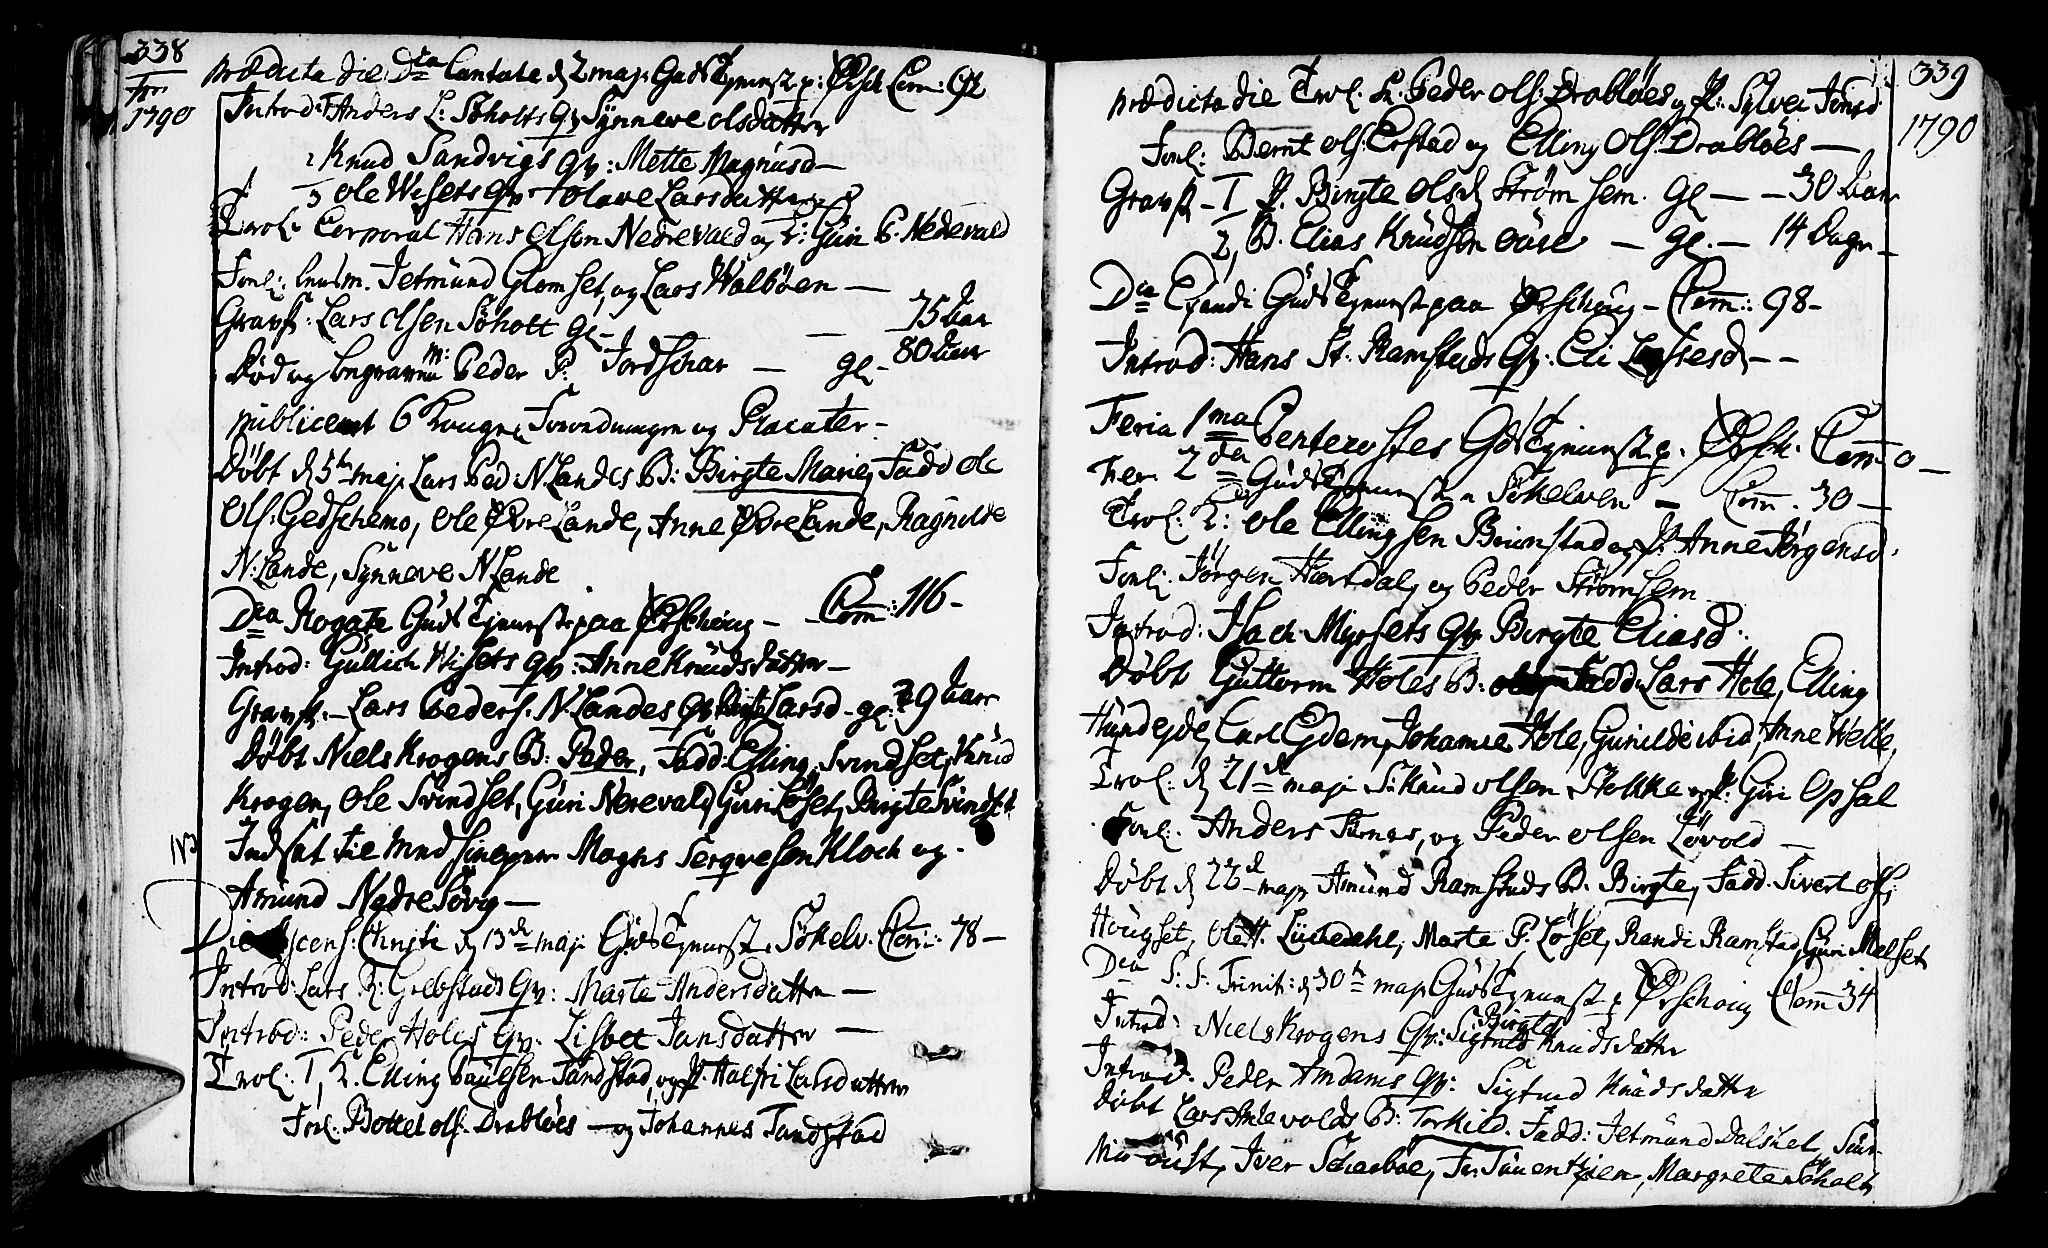 338
1790
prædicta die Dca Cantate d 2 maji Guds Tjenest p: Ørsch Com: 92
Introd: Anders L: Søholts Qv: Synneve olsdatter
2 Knud Sandvigs qv: Mette Magnusd
3 Ole Wisets qv Olave Larsdatter
Trol: Corporal Hans Olsen Nedrevald og P: Guri P. Nedrevald
Forl: Jetmund Glomset, og Lars Walbøen —
Gravf: Lars Olsen Søholt gl — 75 Aar
Død og begraven Peder P: Jordschar — gl - 80 Aar
publiceret 6 Konge Forordninger og Placater -
Døbt d 5te maji Lars Ped: N Landes B: Birgte Marie, Fadd Ole
Ols: Gedschemo, Ole Øvre Lande, Anne Øvre Lande, Ragnilde
N: Lande, Synneve N Lande
Dca Rogate Guds Tjenest paa Ørschoug - Com: 116 -
Introd: Gullich Wisets qv: Anne Knudsdatter —
Gravf: - Lars Peders: N Landes qv Birgte Larsd - gl: 29 Aar
Døbt Niels Krogens B: Peder, Fadd: Elling Svindset, Knud
Krogen, Ole Svindset, Guri Nerevald, Guri Løset, Birgte Svindset
Indsat til Medhielpere Mogns Sergvesen Kloch og -
Amund Nedre Søvig —
Die Ascens: Christi d 13de maji Guds Tjenest Søkelv. Com: 78 —
Introd: Lars R: Grebstads Qv: Marta Andersdatter —
Introd: Peder Holes Qv. Lisbet Jansdatter —
Trol: 1, K. Elling Paulsen Tandstad, og P. Halfri Larsdatter
Forl. Bottel ols. Drabløes — og Johannes Tandstad
339
1790
prædicta die Trol: K: Peder Ols: Drabløes og P: Sylvei Jonsd
Forl: Bernt Ols: Erstad og Elling Ols Drabløes —
Gravf - 1 P. Birgte Olsd Strømsem. gl — - 30 Aar
2, B. Elias Knudsøn ouse — gl. — 14 Dage —
Dca Exaudi Guds Tjenest paa Ørschoug - Com: 98 -
Introd: Hans St. Ramstads Qv: Eli Lassesd - -
Feria 1ma Pentecostes Gds Tjenest p. Ørsch. Com. 0 —
Fer. 2da Guds Tjenest Søkelven — Com. 30 —
Trol: K: Ole Ellingsen Brunstad og P: Anne Jørgensd.
Forl: Jørgen Hurtdal, og Peder Strømsem
Introd: Isach Myrsets Qv Birgte Eliasd:
Døbt Guttorm Holes B: Fadd: Lars Hole, Elling
Hundejde, Carl Ejdem, Johanne Hole, Gunilde ibid, Anne Welle,
Trol: d 21de maji S: Knud Olsen Stokke og P: Guri Opsal
Forl: Anders Fornes, og Peder Olsen Løvold —
Døbt d 22d maji Amund Ramstads B. Birgte, Fadd. Sivert Ols:
Hougset, Ole H. Lyckedahl, Marta P. Løset, Randi Ramstad, Guri Melset
Dca S: S: Trinit: d 30te maji Guds Tjenest p Ørschoug Com 34
Introd: Niels Krogens Qv: Birgte Knudsdatter
Introd: Peder Amdams Qv: Sigtrud Knudsdatter
Døbt Lars Mevolds B: Torkild. Fadd: Jetmund Dalshel,
oust, Iver Scharbøe, Margrete Søholt